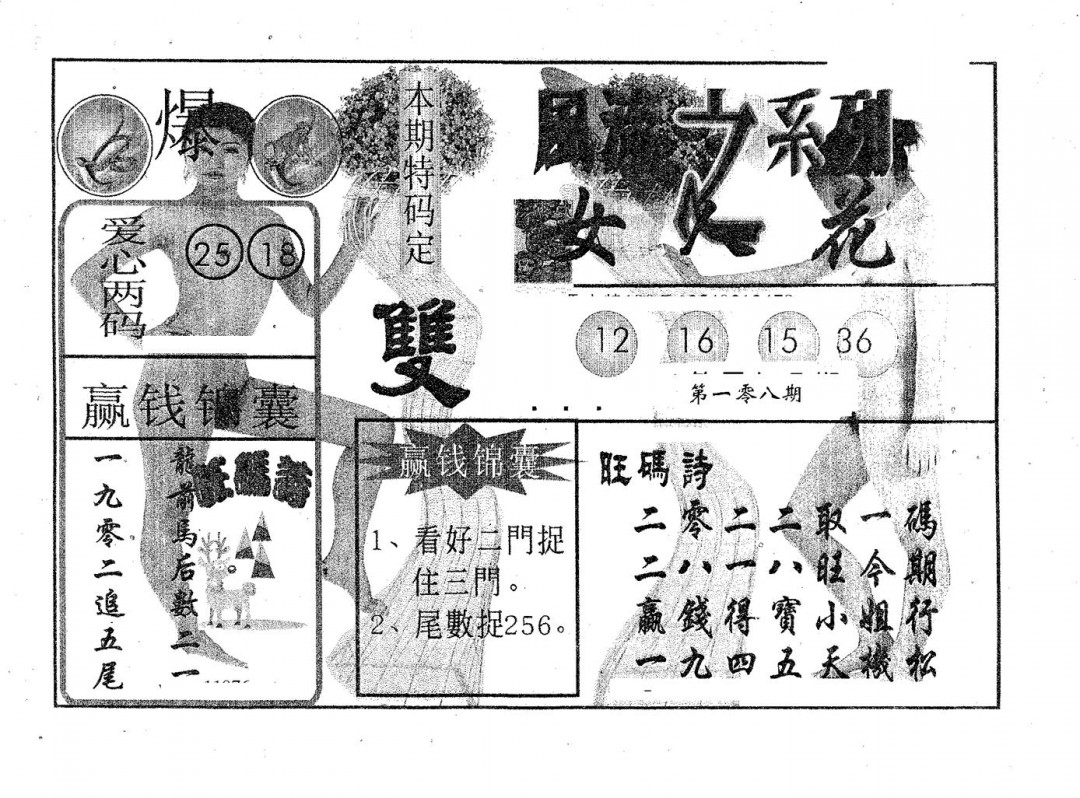 爆
爱心两码
25 18
赢钱锦囊
龍前馬后數二一
一九零二追五尾
本期特码定
雙
赢钱锦囊
1、看好二門捉
住三門。
2、尾數捉256。
之系列
女人花
12 16 15 36
第一零八期
旺碼詩
二零二二取一碼
二八一八旺今期
赢錢得寶小姐行
一九四五天機松